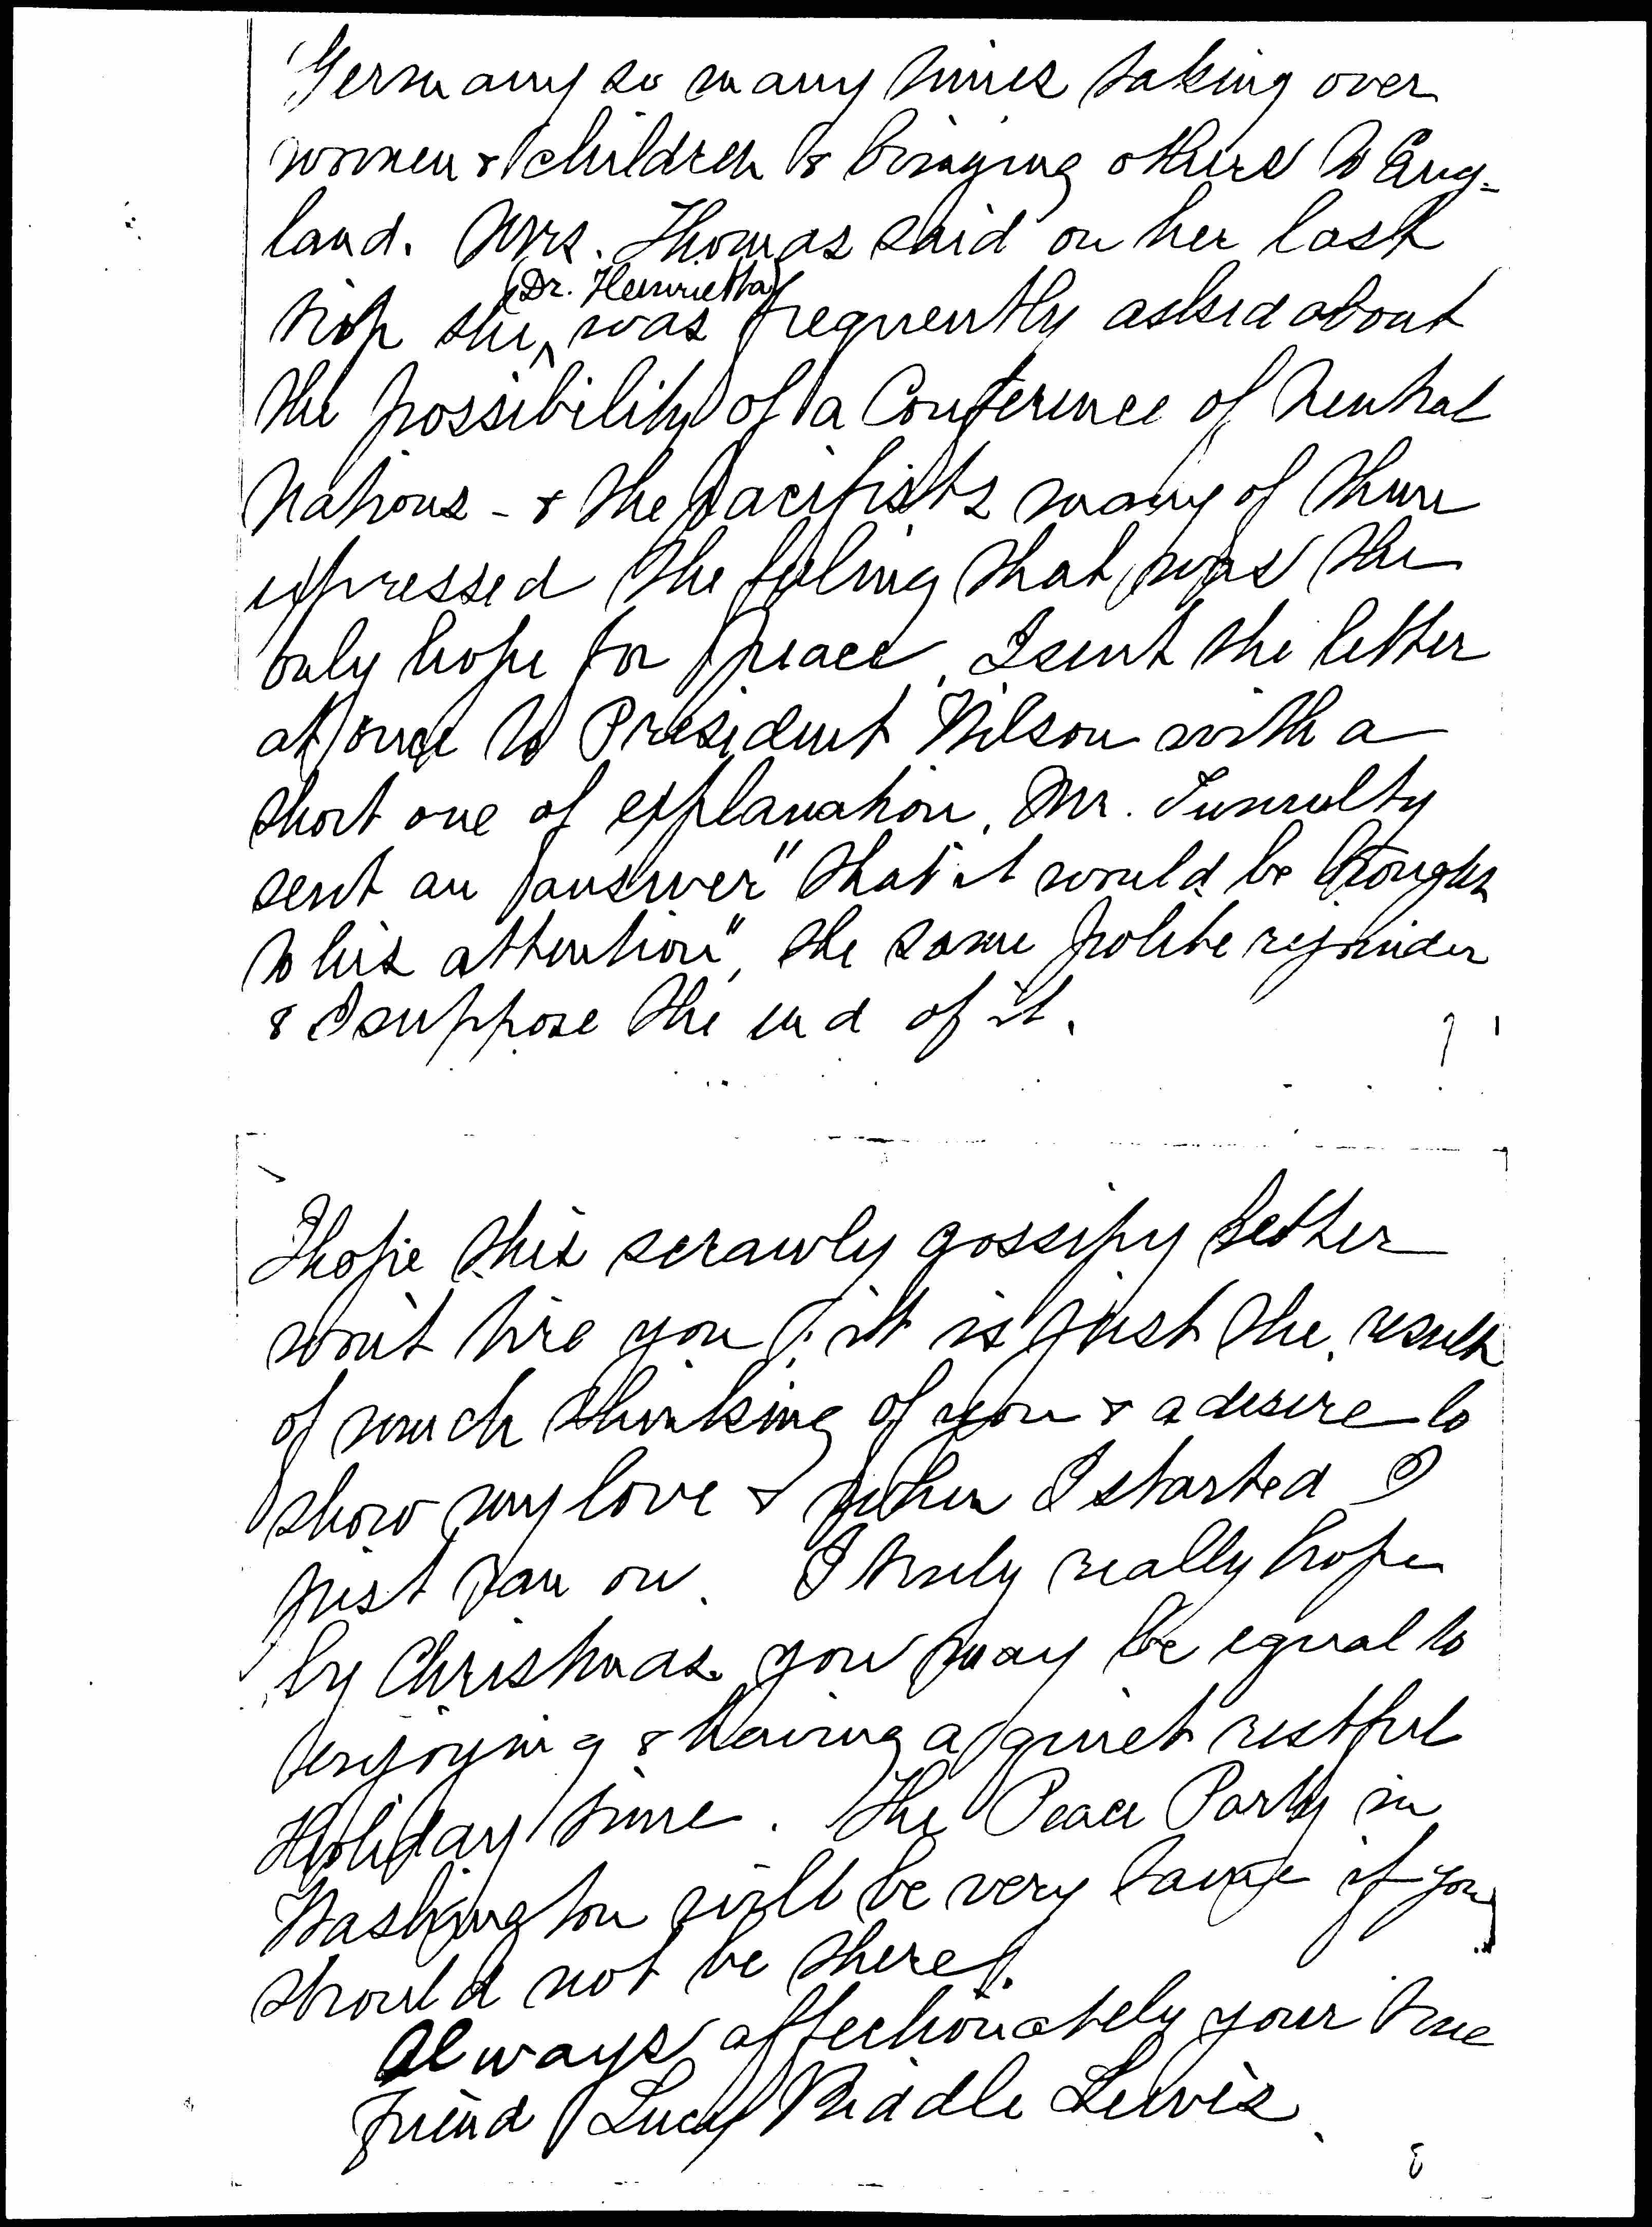 Germany so many times taking over
women & children & bringing others to Eng-
land. Mrs. Thomas said on her last
(Dr. Henrietta)
trip she ^ was frequently asked about
the possibility of a Conference of Neutral
Nations - & the pacifists many of them
expressed the feeling that was the
only hope for peace. I sent the letter
at once to President Wilson with a
short one of explanation. Mr. Tumulty
sent an answer "that it would be brought
to his attention", the same polite rejoinder
& I suppose the end of it.
I hope this scrawly gossipy letter
won't tire you; it is just the result
of much thinking of you & a desire to
show my love & when I started I
just ran on. I truly really hope
by Christmas you may be equal to
enjoying & having a quiet restful
Holiday time. The Peace Party in
Washington will be very large if you
should not be there.
Always affectionately your true
friend Lucy Biddle Lewis.